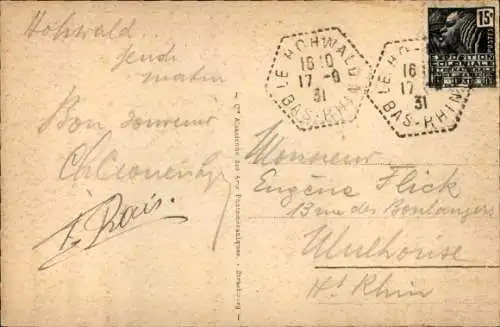 Hohwald
jeudi
matin
Bon souvenir
LE HOHWALD
16 10
17 -9
31
BAS-RHIN
LE HO
16
17
31
BAS-RHIN
15c
EXPOSITION
COLONIALE
Monsieur
Eugène Flick
13 rue des Boulangers
Mulhouse
Ht Rhin
Cie Alsacienne des Arts Photomécaniques, Strasbourg